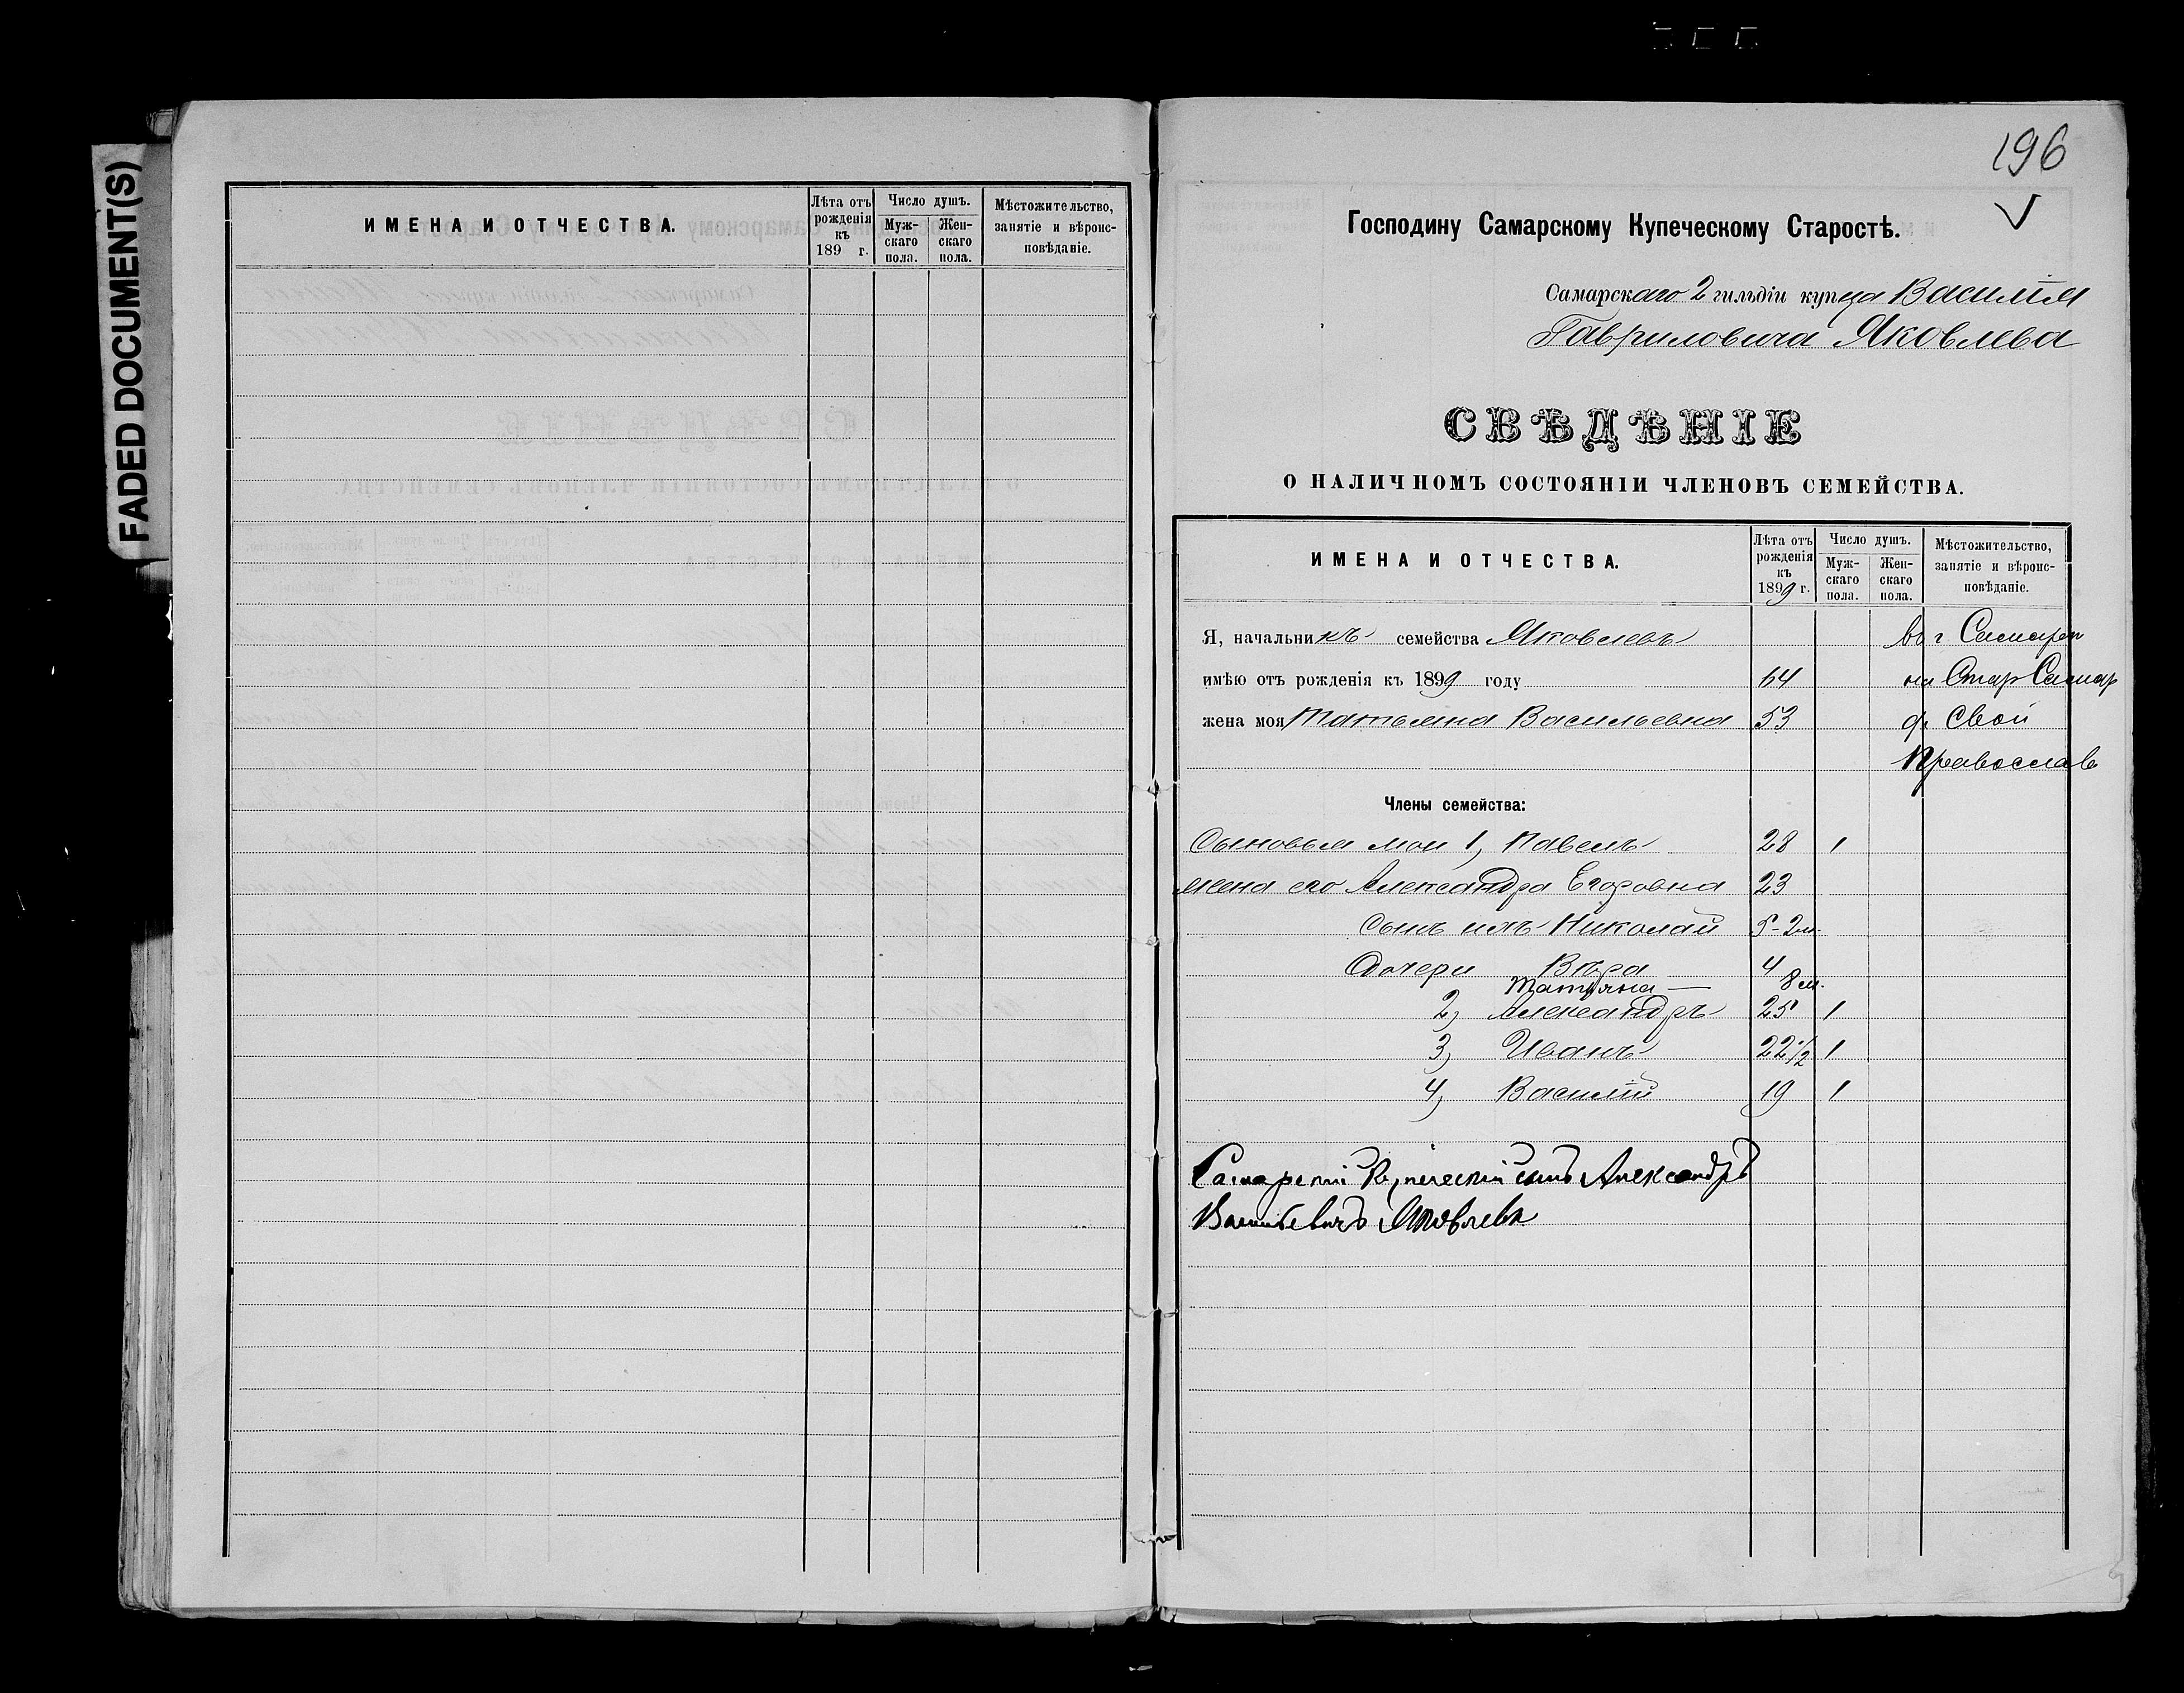 FADED DOCUMENT(S)
ИМЕНА И ОТЧЕСТВА.
Лѣта отъ рожденія къ 189 г.
Число душъ.
Муж-скаго пола.
Жен-скаго пола.
Мѣстожительство, занятіе и вѣроис-повѣданіе.
196
Господину Самарскому Купеческому Старостѣ.
Самарскаго 2 гильдіи купца Василія
Гавриловича Яковлева
СВѢДѢНІЕ
О НАЛИЧНОМЪ СОСТОЯНІИ ЧЛЕНОВЪ СЕМЕЙСТВА.
ИМЕНА И ОТЧЕСТВА.
Лѣта отъ рожденія къ 1899 г.
Число душъ.
Муж-скаго пола.
Жен-скаго пола.
Мѣстожительство, занятіе и вѣроис-повѣданіе.
Я, начальникъ семейства Яковлевъ въ г Самарѣ
имѣю отъ рожденія къ 1899 году 64 на Стар Самар
жена моя Татьяна Васильевна 53 д. Свой
Православ
Члены семейства:
Сыновья мои 1, Павелъ 28 1
жена его Александра Егоровна 23
Сынъ ихъ Николай 5-2м.
Дочери Вѣра 4
Татьяна — 8 м.
2, Александръ 25 1
3, Иванъ 22 1/2 1
4, Василій 19 1
Самарскій Купеческій сынъ Александръ
Васильевичъ Яковлевъ